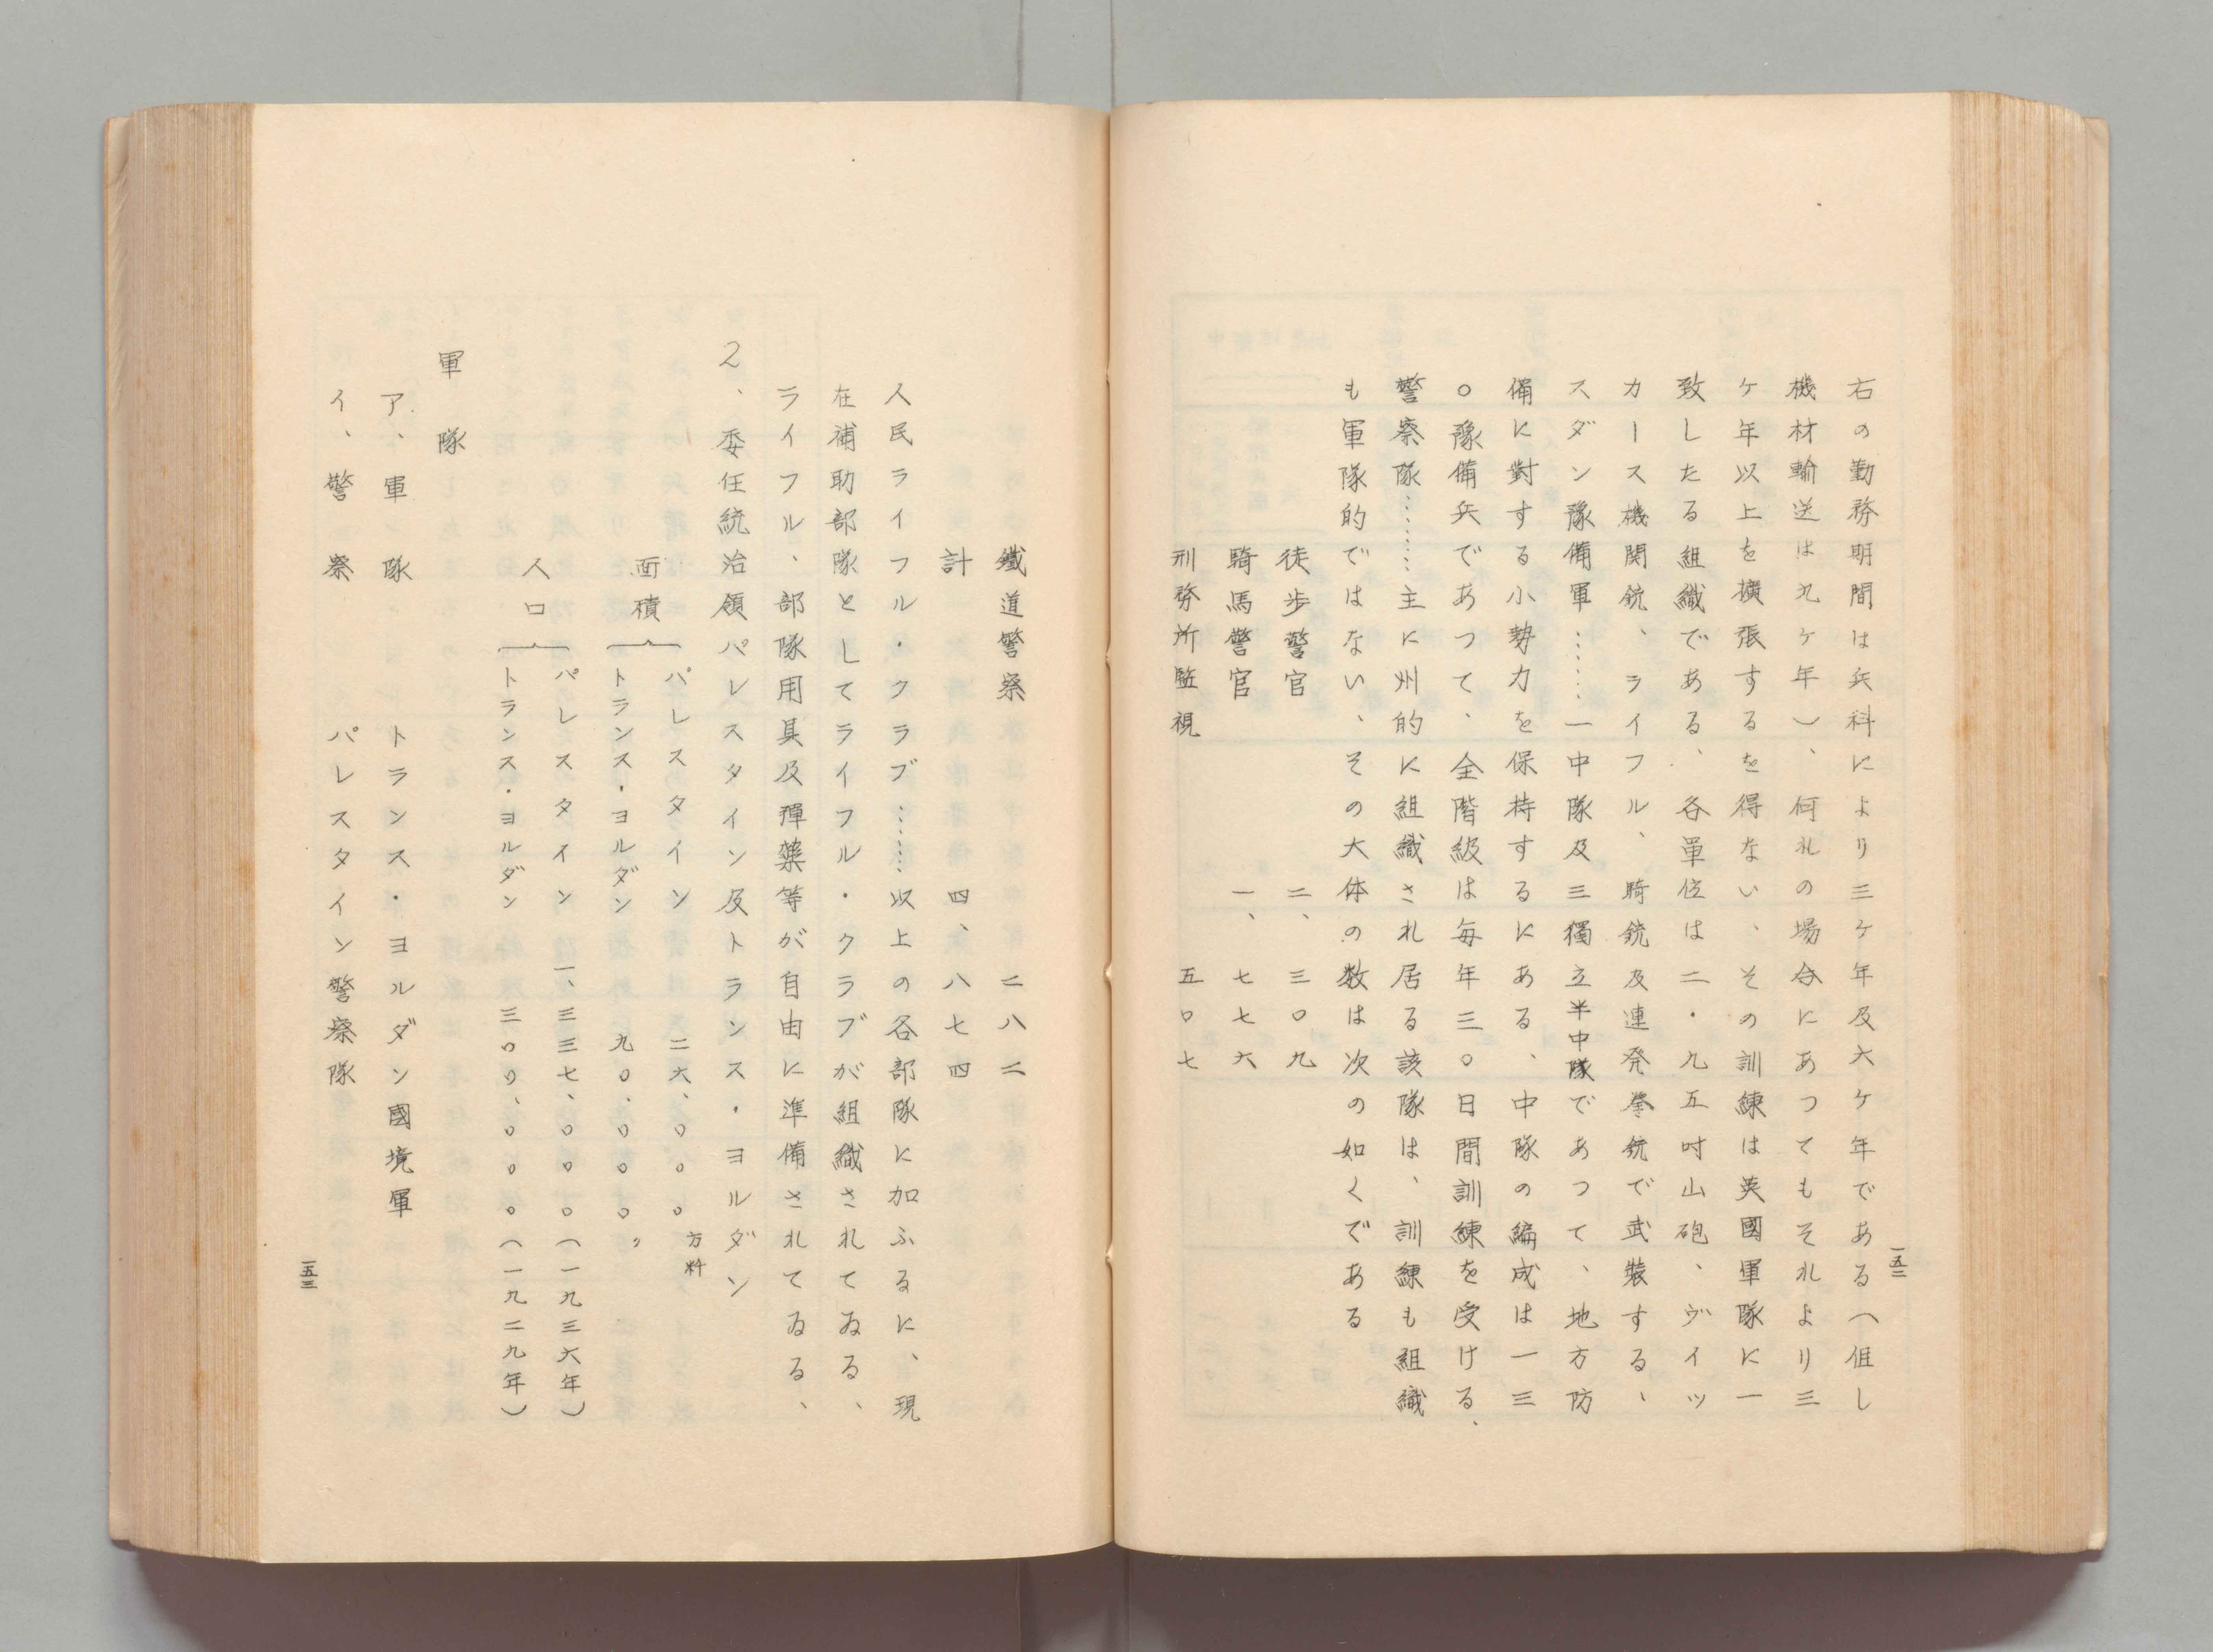 右の勤務期間は兵科により三ケ年及六ケ年である（但し
機材輸送は九ケ年）、何れの場合にあつてもそれより三
ケ年以上を擴張するを得ない、その訓練は英國軍隊に一
致したる組織である、各單位は二・九五吋山砲、ヴイツ
カース機関銃、ライフル、騎銃及連発拳銃で武装する、
スダン豫備軍……一中隊及三獨立半中隊であつて、地方防
備に對する小勢力を保持するにある、中隊の編成は一三
〇豫備兵であつて、全階級は毎年三〇日間訓練を受ける、
警察隊………主に州的に組織され居る該隊は、訓練も組織
も軍隊的ではない、その大体の数は次の如くである
徒歩警官　二、三〇九
騎馬警官　一、七七六
刑務所監視　五〇七
一五二
鐵道警察　二八二
計　四、八七四
人民ライフル・クラブ……以上の各部隊に加ふるに、現
在補助部隊としてライフル・クラブが組織されてゐる、
ライフル、部隊用具及彈藥等が自由に準備されてゐる、
2、委任統治領パレスタイン及トランス・ヨルダン
面積｛パレスタイン　二六、〇〇〇方粁
トランス・ヨルダン　九〇、〇〇〇〃
人口｛パレスタイン　一、三三七、〇〇〇（一九三六年）
トランス・ヨルダン　三〇〇、〇〇〇（一九二九年）
軍隊
ア、軍隊　トランス・ヨルダン國境軍
イ、警察　パレスタイン警察隊
一五三